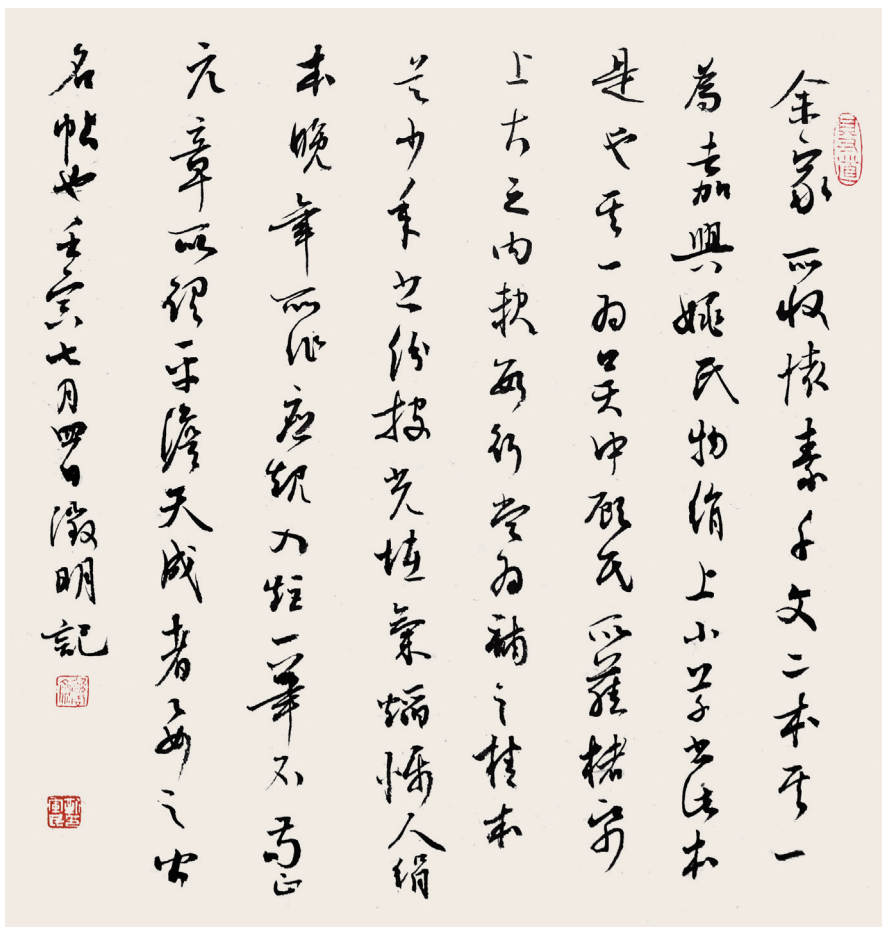 余家所收懷素千文二本其一
為嘉興姚氏物絹上小草書法本
是也其一為吳中顧氏所藏楮
上 之內軼數行嘗為補之楮本
少年書紛披 氣焰懾人絹
本晚年所作應規入矩一筆不苟正
元章所謂平澹天成者
名帖也壬寅七月四日徵明記